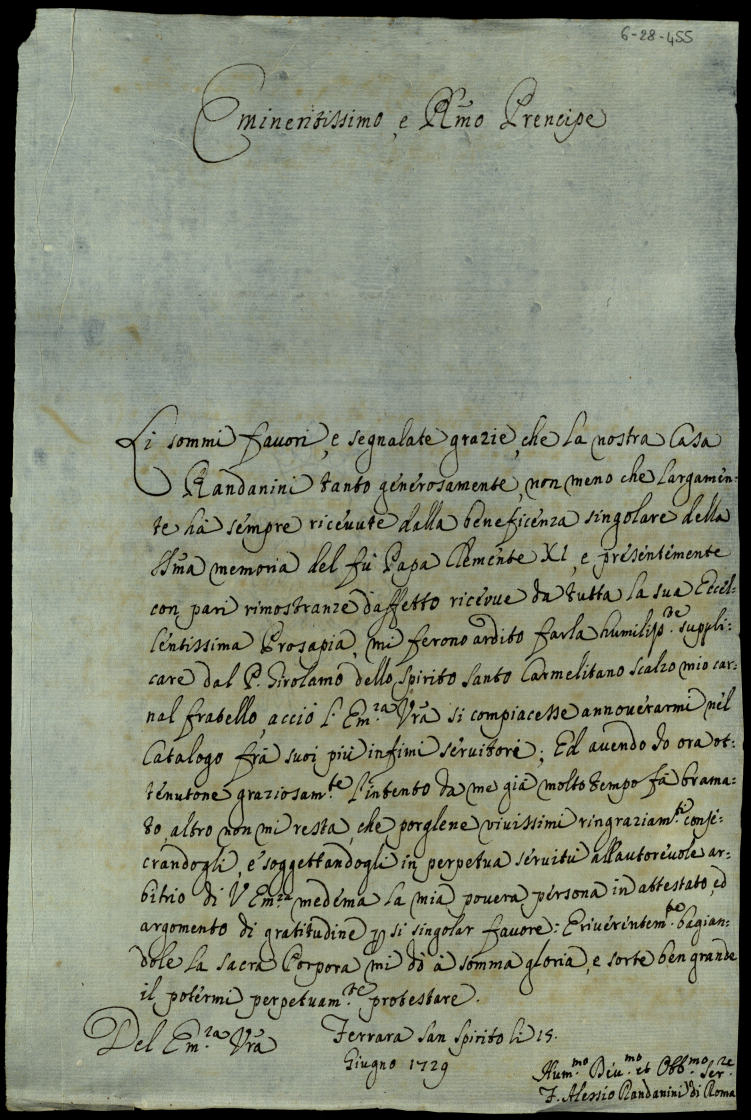 6-28-455
Eminentissimo, e Rmo Prencipe
Li sommi favori, e segnalate grazie, che la nostra Casa
Randanini tanto generosamente, non meno che largamen:
te hà sempre ricevute dalla beneficenza singolare della
Sma memoria del fù Papa Clemente XI, e presentemente
con pari rimostranze d'affetto riceve da tutta la sua Eccel:
lentissima Prosapia, mi ferono ardito farla humilissте suppli:
care dal P. Girolamo dello Spirito Santo Carmelitano Scalzo mio car:
nal fratello, acciò l'Em.za Vrã si compiacesse annoverarmi nel
Catalogo frà suoi più infimi servitori; Ed avendo Io ora ot:
tenutone graziosam.te l'intento da me già molto tempo fà brama:
to, altro non mi resta, che porglene vivissimi ringraziam.ti conse:
crandogli, e soggettandogli in perpetua servitù all'autorevole ar:
bitrio di V Em.za medema la mia povera persona in attestato, ed
argomento di gratitudine p si singolar favore: E riverentem.te bagian:
dole la sacra Porpora mi dò à somma gloria, e sorte ben grande
il potermi perpetuam.te protestare.
Del Em.za Vrã
Ferrara San Spirito li 15.
Giugno 1729
Hum.mo Dev.mo et Obb.mo Ser.re
F. Alessio Randanini di Roma